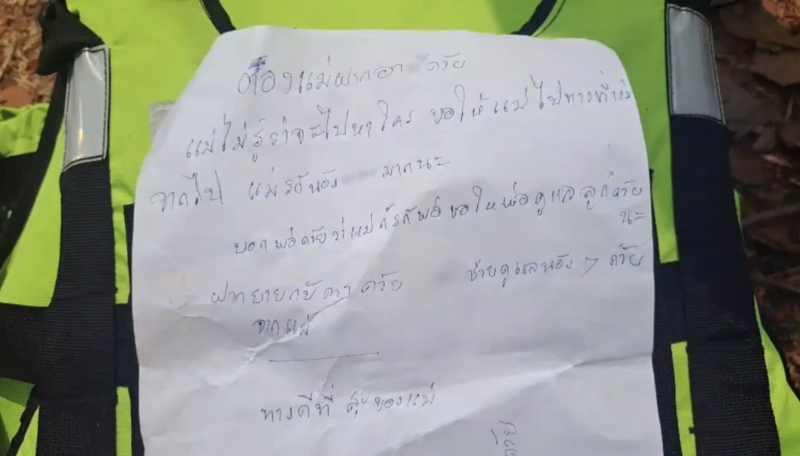 ต้องแม่ฝากอา ด้วย
แม่ไม่รู้ว่าจะไปหาใคร ขอให้แม่ไปทางที่
จากไป แม่รักน้อง มากนะ
บอกพ่อด้วยว่าแม่ ขอให้พ่อดูแลลูกด้วย
นะ
ฝากยายกับตาด้วย ช่วยดูแลน้อง ๆ ด้วย
จากแม่
ทางดีที่ ของแม่